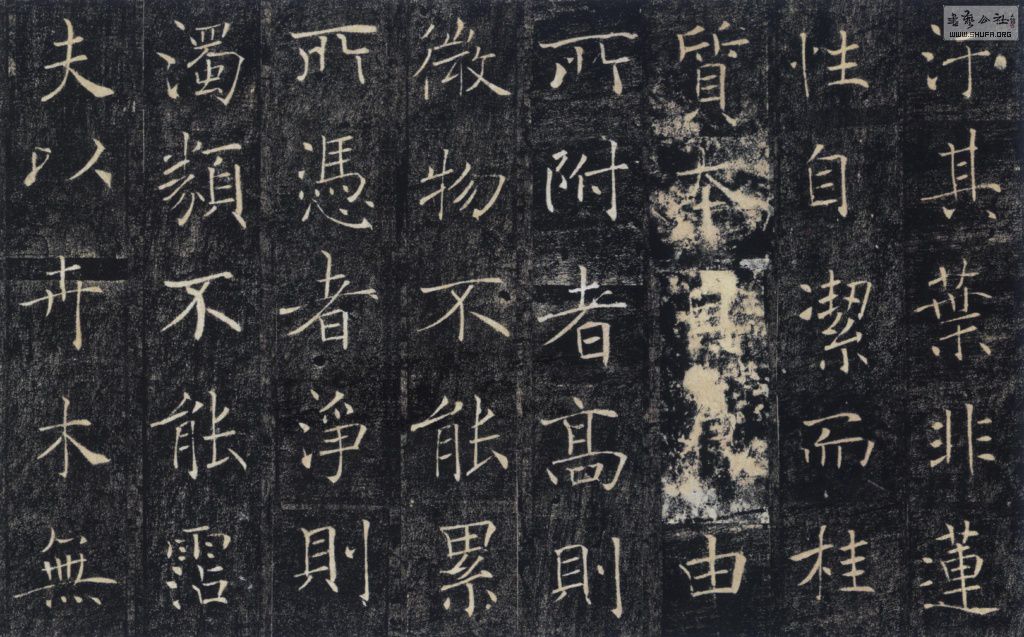 汙其葉非蓮
性自潔而桂
質本由
所附者高則
微物不能累
所憑者淨則
濁類不能霑
夫以卉木無
書藝公社
WWW.SHUFA.ORG